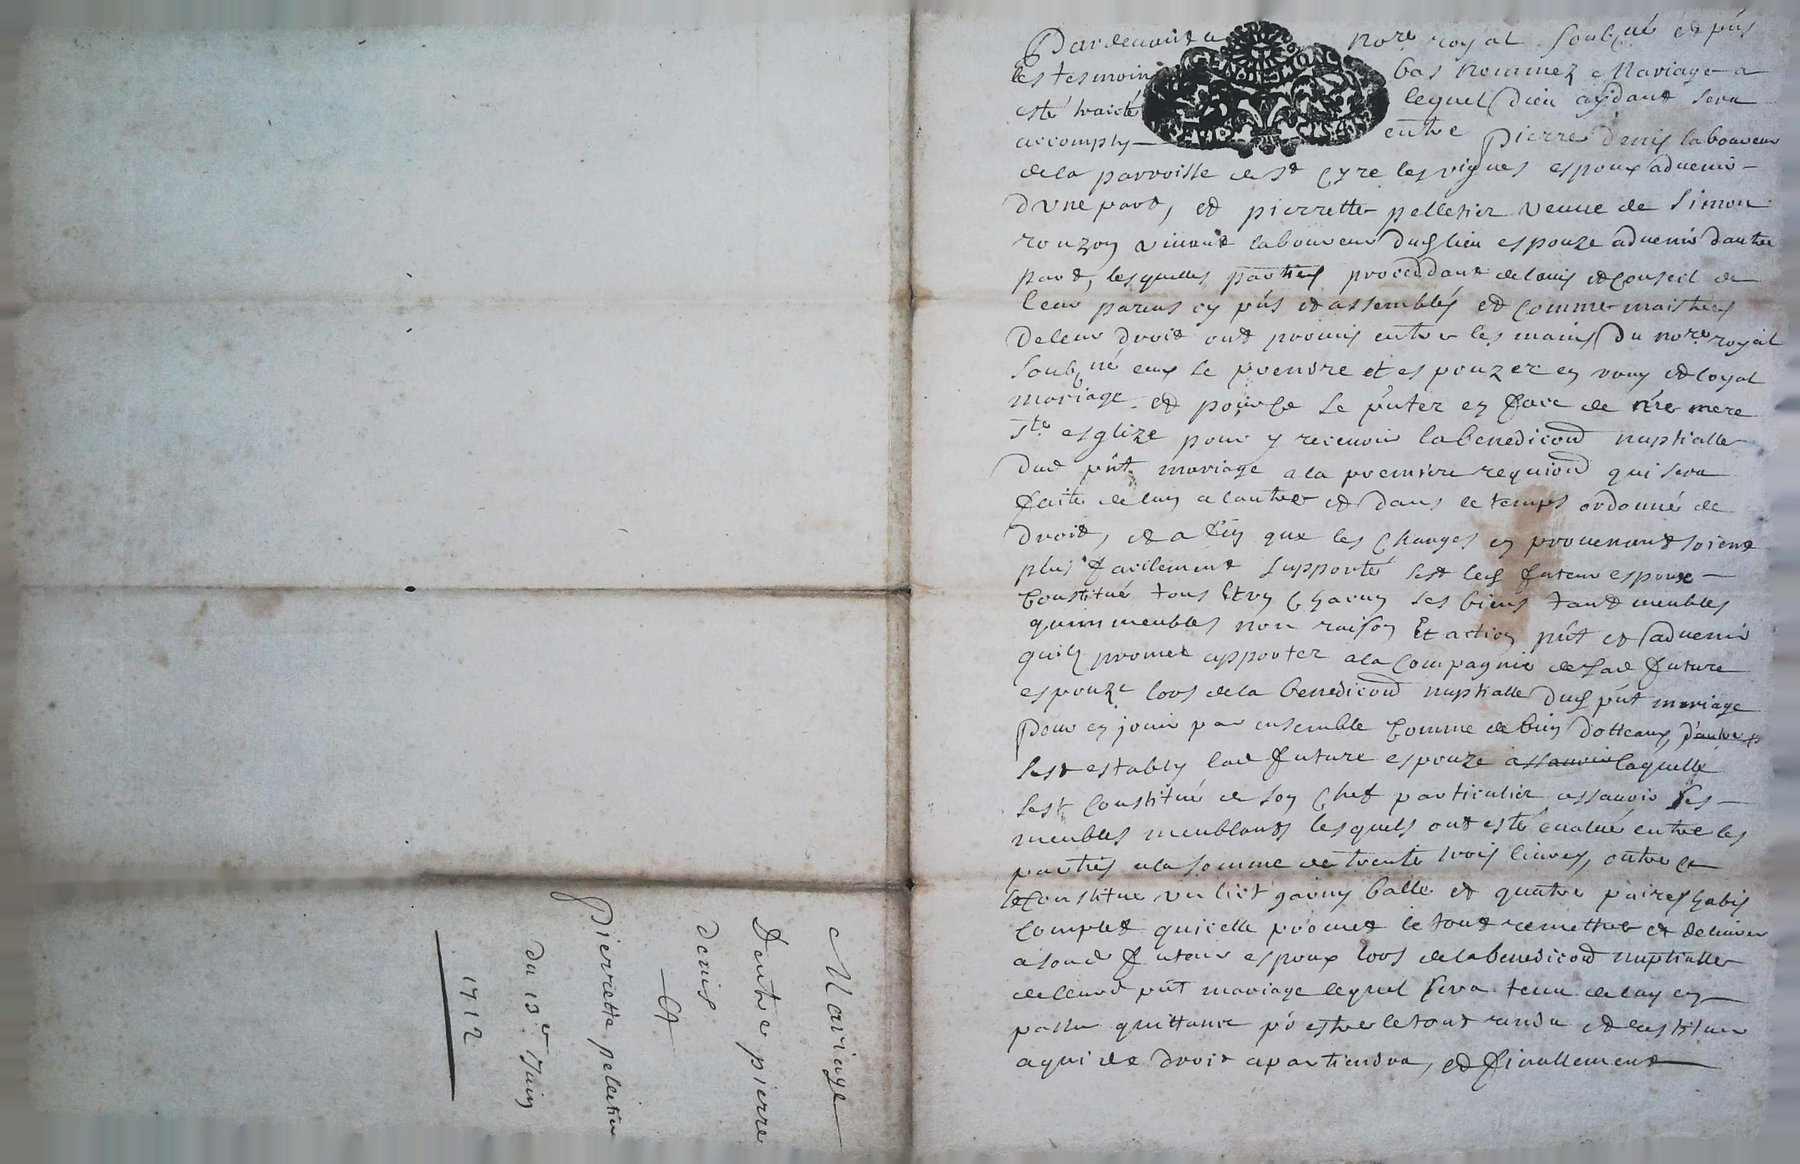 Pardevant le nore royal soubsné et pñs
les tesmoin bas nommez Mariage a
esté traicté lequel Dieu aydant sera
accomply entre Pierre Denis laboureur
de la parroisse de St Cyre les vignes espoux advenir
d'une part, et pierrette pelletier veuve de Simon
rouzon vivant laboureur dud lieu espouze advenir dautre
part, lesquelles parties proceddant de lavis et conseil de
leur parens cy pñs et assemblés et comme maistres
de leur droit ont promis entre les mains du nore royal
soubsné eux se prendre et espouzer en vray et loyal
mariage et pour ce se pñter en face de nre mere
Ste esglize pour y recevoir la benediction nuptialle
dud pñt mariage a la premiere requiond qui sera
faite de luy a lautre et dans le temps ordonné de
droit, et a fin que les charges en provenant soient
plus facilement supporté sest led futeur espoux
Constitué tous et un chacun ses biens tant meubles
quimmeubles nom raison Et action pñt et advenir
quil promet apporter a la compagnie de lad future
espouze lors de la benediction nuptialle dud pñt mariage
pour en jouir par ensemble comme de bien dotteaux, d'autre p
sest estably lad future espouze assavoir laquelle
sest constitué de son chef particulier assavoir ses
meubles meublants lesquels ont esté évalué entre les
parties a la somme de trente trois livres, outre ce
se constitue un lict garny balle et quatre paires habis
complet quicelle promet le tout remettre et delivrer
a sond futeur espoux lors de la benediction nuptialle
de leurd pñt mariage lequel sera tenu de luy en
passer quittance pr estre le tout randu et restitue
a qui de droit apartiendra, et finallement
Mariage
Dentre pierre
denis
Et
Pierrette peletier
du 13e Juin
1712